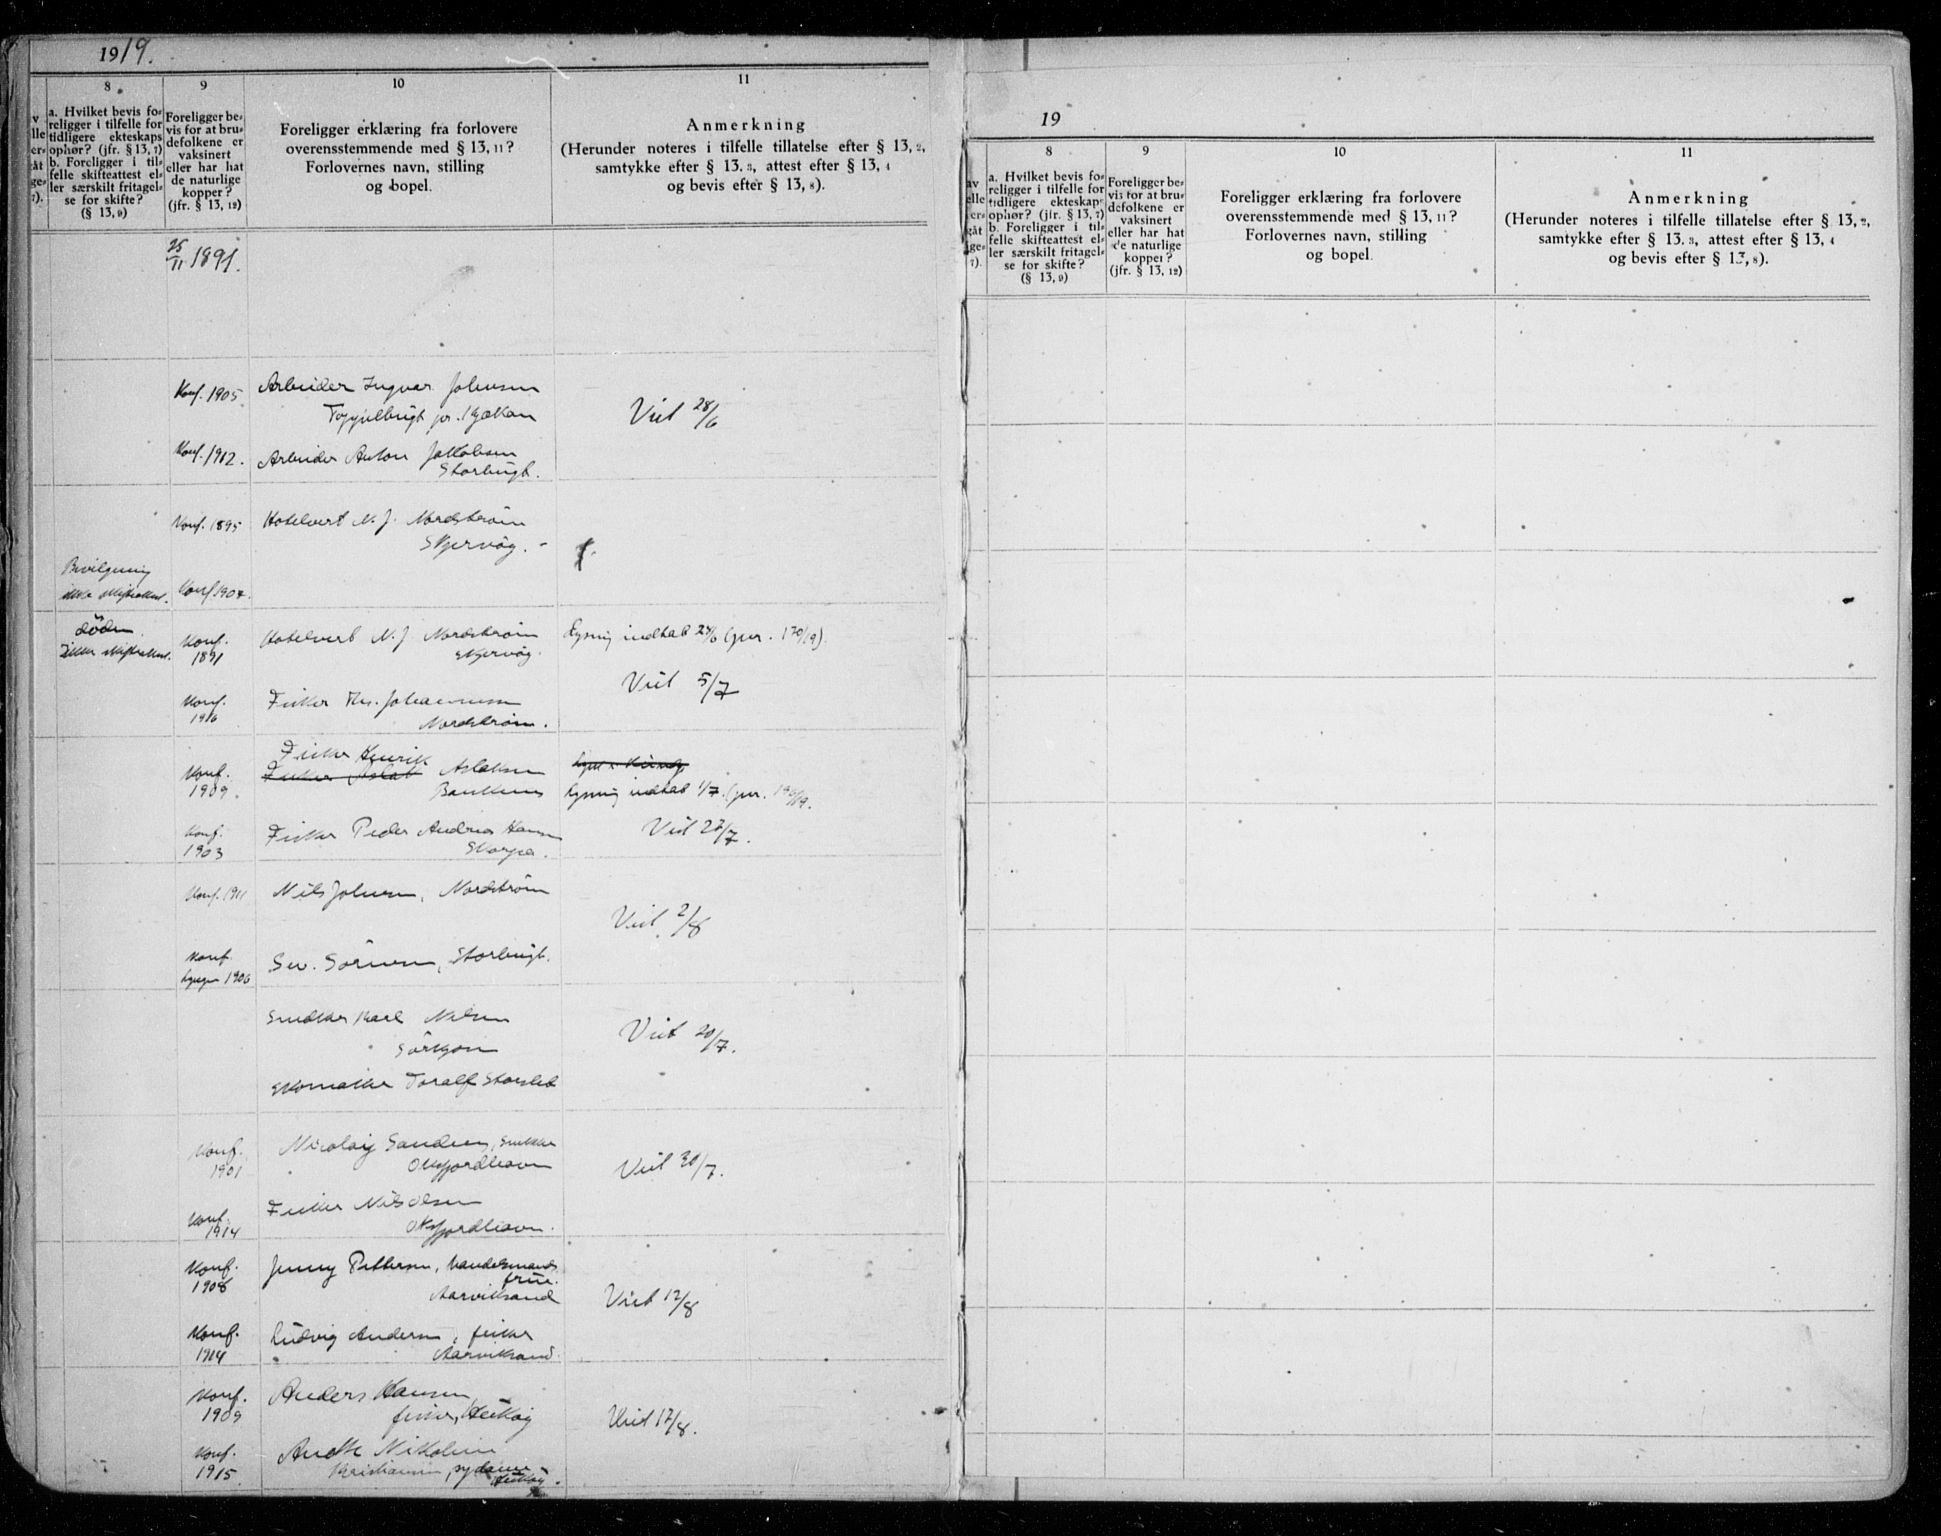 1919.
8
9
10
11
v
lle
er=
åt
ge=
7).
a. Hvilket bevis fo=
religger i tilfelle for
tidligere ekteskaps
ophør? (jfr. § 13, 7)
b. Foreligger i til=
felle skifteattest el=
ler særskilt fritagel=
se for skifte?
(§ 13, 9)
Foreligger be=
vis for at bru=
defolkene er
vaksinert
eller har hat
de naturlige
kopper?
(jfr. § 13, 12)
Foreligger erklæring fra forlovere
overensstemmende med § 13, 11?
Forlovernes navn, stilling
og bopel.
Anmerkning
(Herunder noteres i tilfelle tillatelse efter § 13, 2,
samtykke efter § 13. 3, attest efter § 13, 4
og bevis efter § 13, 8).
25/11 1891.
Konf. 1905
Arbeider Ingvar Johnsen
Viet 28/6
Konf. 1912.
Arbeider Anton Jakobsen
Storbugt.
Konf. 1895
Hotelvert N. J. Nordstrøm
Skjervøy.
Bevilgning
ikke skifteattest.
Konf 1907.
døden.
Ikke skifteattest.
Konf.
1891
Hotelvert N. J. Nordstrøm
Skjervøy.
Lysning indtat 24/6 (jnr. 170/19).
Viet 5/7
Konf.
1916
Fisker Johannesen
Nordstrøm.
Fisker Henrik
Fisker Aslak Aslaksen
Konf.
1909.
Lysning indtat 1/7. (jnr.
Konf.
1903
Fisker Peder Andreas Hansen
Skorpa.
Viet 27/7.
Konf. 1911
Nils Johnsen, Nordstrøm
Viet 2/8
Konf.
Lyngen 1906
Sørensen, Storbugt.
Snekker Karl Nilsen
Viet 20/7.
Skomaker Toralf Storslet
Konf.
1901
Nicolay Sandnes, snekker
Oksfjordhavn
Viet 30/7.
Konf.
1914
Fisker Nils Olsen
Oksfjordhavn.
Konf.
1908
Jenny Pettersen, handelsmands
frue.
Aarviksand
Viet 12/8
Konf.
1914
Ludvig Andersen, fisker
Aarviksand.
Konf.
1909
Anders Hansen
fisker, Haukøy
Viet 17/8.
Konf.
1915.
Nikoline
Kristiansen, sydame
Haukøy.
19
8
9
10
11
av
elle
ers
gåt
ige=
7).
a. Hvilket bevis fo=
religger i tilfelle for
tidligere ekteskaps
ophør? (jfr. § 13, 7)
b. Foreligger i til=
felle skifteattest el=
ler særskilt fritagel=
se for skifte?
(§ 13, 9)
Foreligger be=
vis for at bru=
defolkene er
vaksinert
eller har hat
de naturlige
kopper?
(jfr. § 13, 12)
Foreligger erklæring fra forlovere
overensstemmende med § 13, 11?
Forlovernes navn, stilling
og bopel.
Anmerkning
(Herunder noteres i tilfelle tillatelse efter § 13, 2,
samtykke efter § 13. 3, attest efter § 13, 4
og bevis efter § 13, 8).